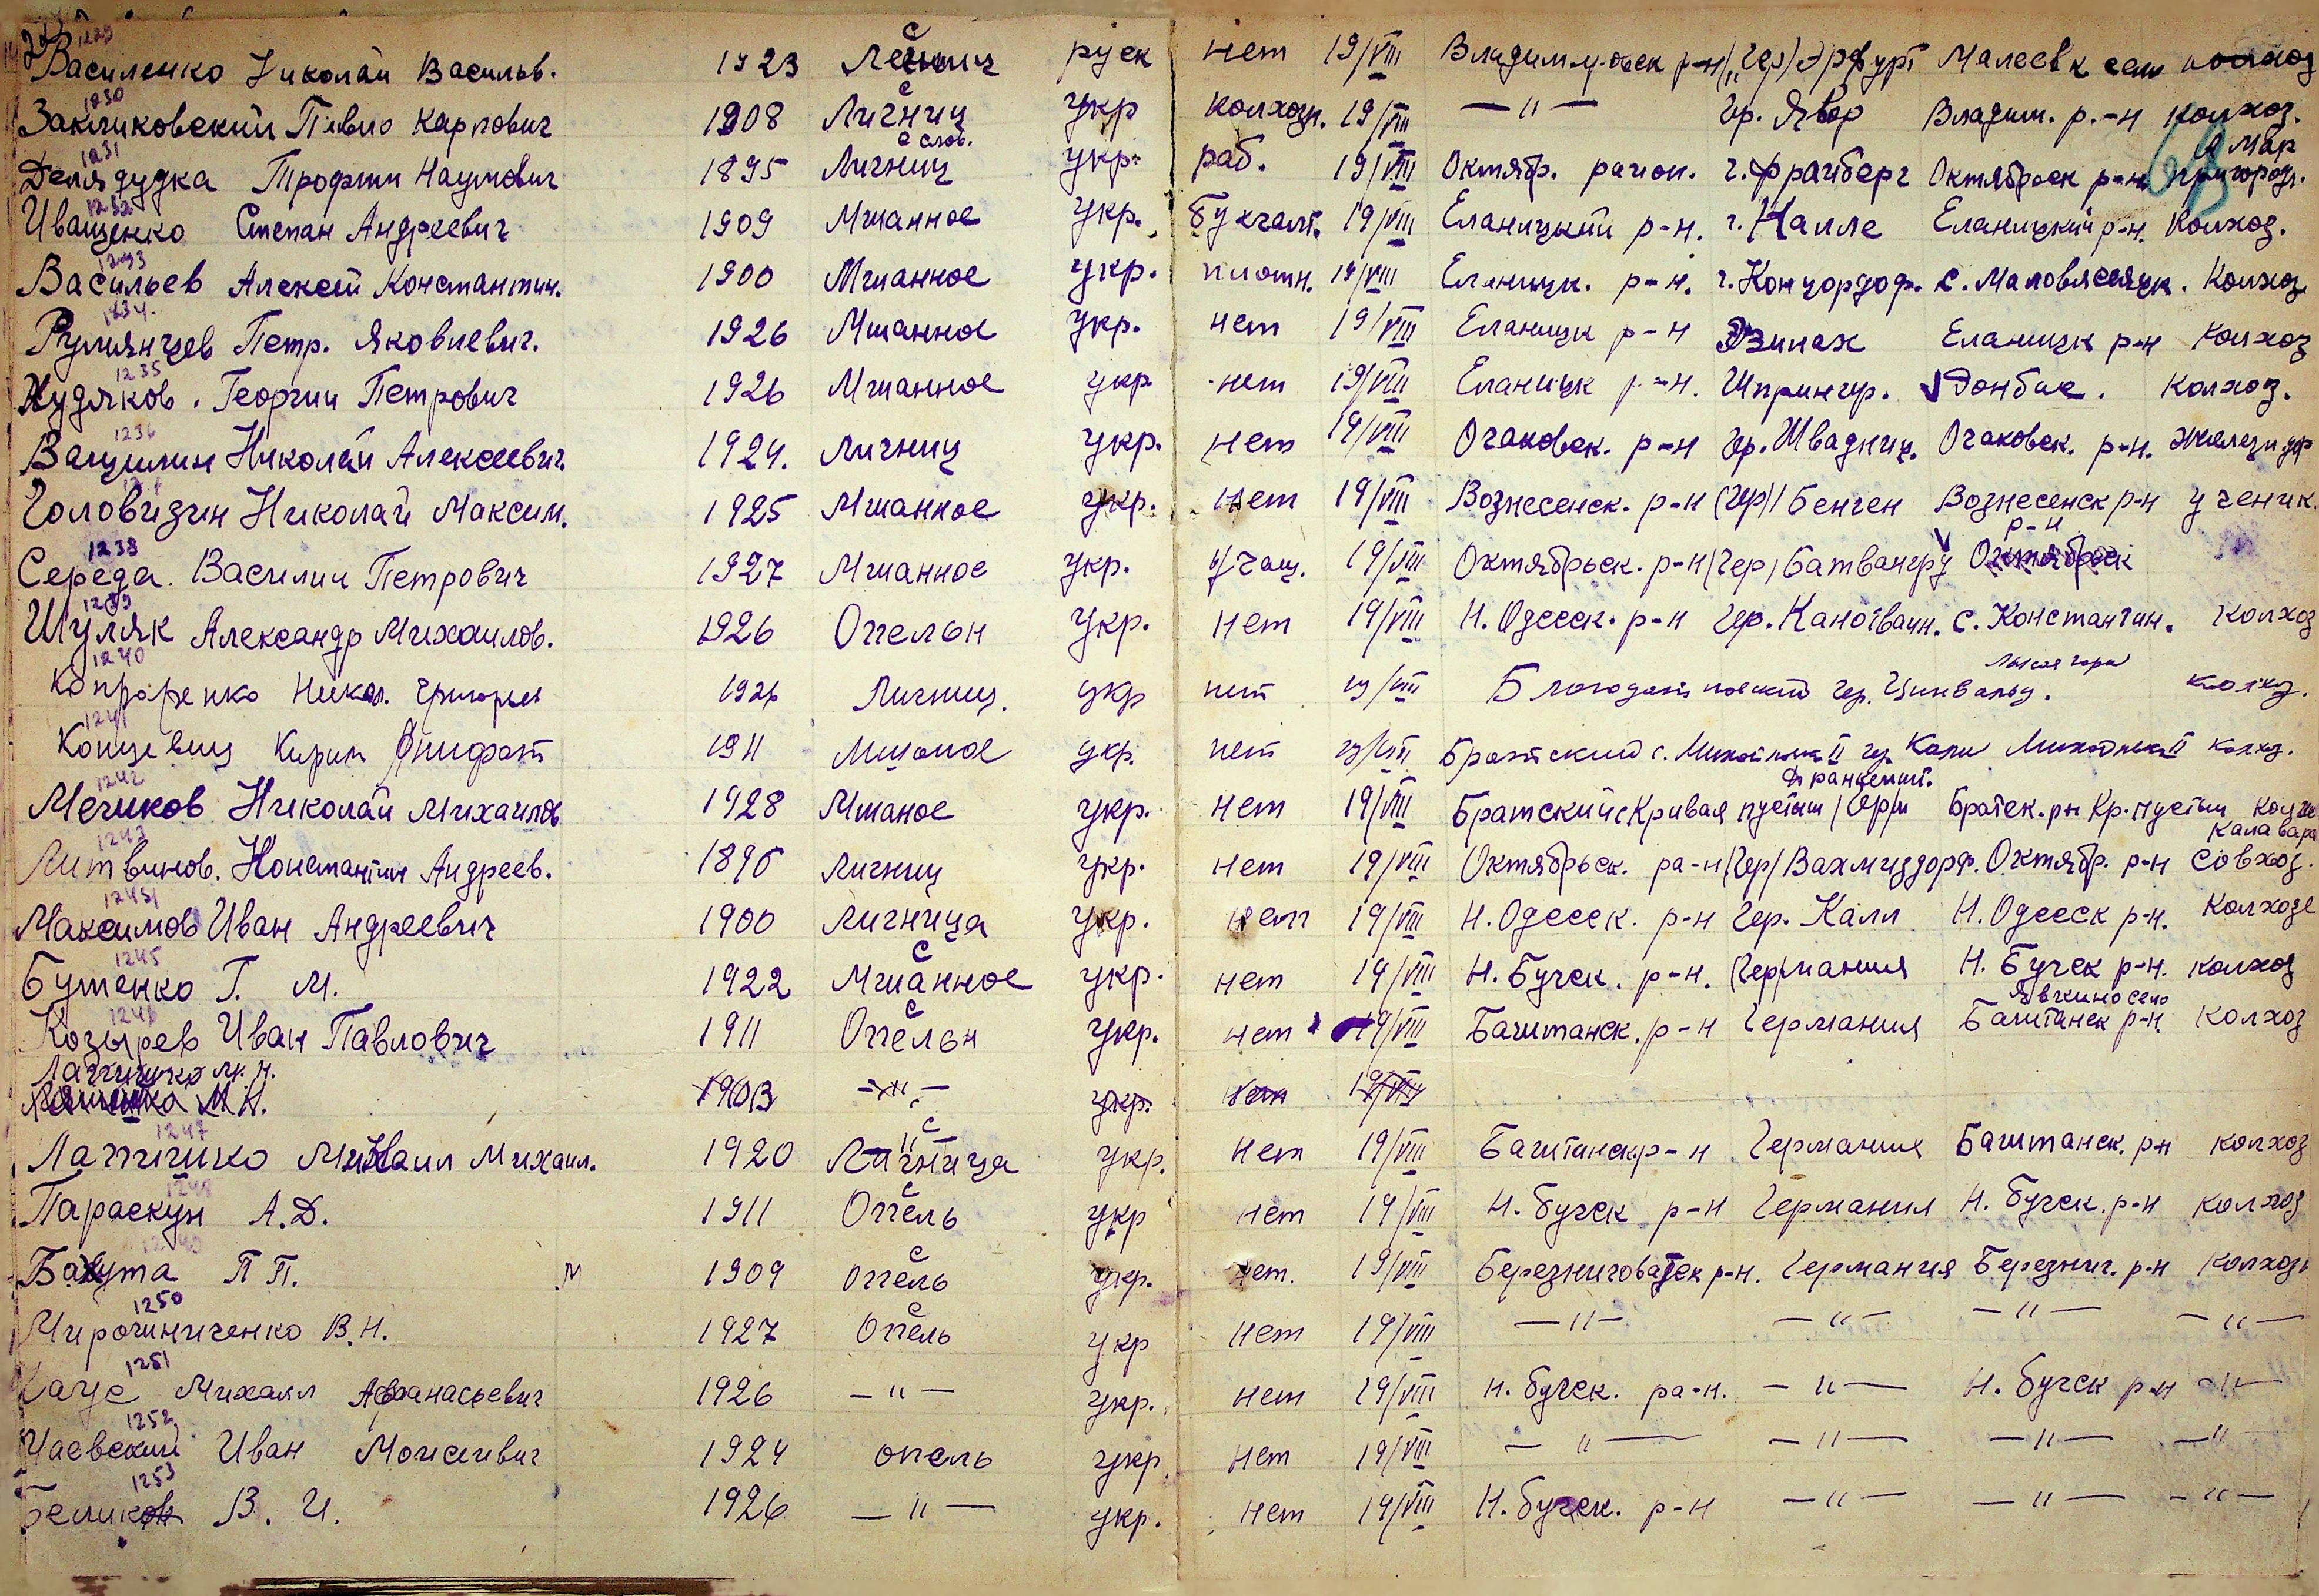 1229
Василенко Николай Васильв. 1923 Легниц с руск нет 19/VIII Владимировск р-н (гер) Эрфурт Малеевк село колхоз
1230
Закликовский Павло Карпович 1908 Личниц с укр колхозн. 19/VIII —"— гр. Явор Владим. р.-н колхоз.
1231 с слов. я мар
Делядудка Трофим Наумович 1895 Личниц укр. раб. 19/VIII Октябр. район. г. Фрайберг Октябрьск р-н пригород.
1232
Иващенко Степан Андреевич 1909 Мшанное укр. бухгалт. 19/VIII Еланицкий р-н. г. Халле Еланицкий р-н. Колхоз.
1233
Васильев Алексей Константин. 1900 Мшанное укр. плотн. 19/VIII Еланицк. р-н. г. Концордоф. с. Маловясляцк. Колхоз
1234.
Румянцев Петр. Яковлевич. 1926 Мшанное укр. нет 19/VIII Еланицк р-н Эзипах Еланицк р-н колхоз
1235
Худяков. Георгий Петрович 1926 Мшанное укр нет 19/VIII Еланицк р-н. Шпрингр. Донбас. колхоз.
1236
Ващилин Николай Алексеевич. 1924. Личниц укр. нет 19/VIII Очаковск. р-н гр. Швадниц. Очаковск. р-н.
Головизин Николай Максим. 1925 Мшанное укр. нет 19/VIII Вознесенск. р-н (гер) Бенген Вознесенск р-н ученик.
1238 р-н
Середа. Василий Петрович 1927 Мшанное укр. учащ. 19/VIII Октябрьск. р-н (гер) Батвангру Октябрск
1239
Шуляк Александр Михаилов. 1926 Опельн укр. нет 19/VIII Н. Одесск. р-н гер. Канотвайн. с. Константин. колхоз
1240 Лысая гора
Никол. Григорьев 1926 Личниц. укр нет 19/VIII Благодатновский гер. Цинвальд. колхз.
1241
Концевич Кирил 1911 Мшаное укр. нет 19/VIII Братский с. Михайловк II гер. Кали Михайловк II колхоз.
1242 Франкемшт.
Мечиков Николай Михаилов 1928 Мшаное укр. нет 19/VIII Братский с Кривая пустош /гер/и Братск. рн Кр. пустош колхоз
1243 Калавара
Литвинов. Константин Андреев. 1896 Личниц укр. нет 19/VIII Октябрьск. ра-н (гер) Вахмиздорф. Октябр. р-н совхоз.
1244
Максимов Иван Андреевич 1900 Личница укр. нет 19/VIII Н. Одесск. р-н гер. Калл Н. Одесск р-н. колхозе
1245
Бутенко Г. М. 1922 Мшанное с укр. нет 19/VIII Н. Бугск. р-н. (Гер)мания Н. Бугск р-н. колхоз
1246 Явкино село
Козырев Иван Павлович 1911 Опельн с укр. нет 19/VIII Баштанск. р-н Германия Баштанск р-н колхоз
Лапшишко М. Н.
М. Н. 1903 —"— укр. нет 19/VIII
1247
Лапшишко Михаил Михаил. 1920 Личница с укр. нет 19/VIII Баштанск р-н Германия Баштанск. р-н колхоз
1248
Параскун А.Д. 1911 Опель с укр нет 19/VIII Н. Бугск р-н Германия Н. Бугск. р-н колхоз
1249
Бахута П П. м 1909 Опель с укр. нет. 19/VIII Березниговатск р-н. Германия Березниг. р-н колхозн
1250
Мирошниченко В.Н. 1927 Опель с укр нет 19/VIII —"— —"— —"— —"—
1251
Кауе Михаил Афанасьевич 1926 —"— укр. нет 19/VIII Н. Бугск. ра-н. —"— Н. Бугск р-н —"—
1252
Чаевский Иван Моисеевич 1924 опель укр. нет 19/VIII —"— —"— —"— —"—
1253
Беликов В. И. 1926 —"— укр. нет 19/VIII Н. Бугск. р-н —"— —"— —"—